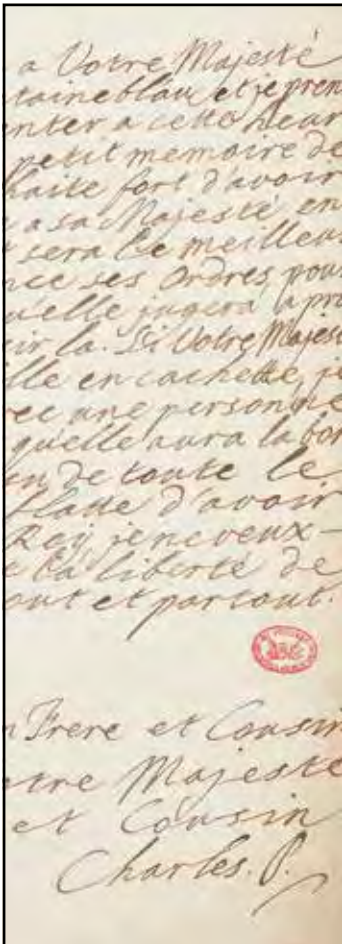 a Votre Majesté
tainebleau et je pren
enter a cette heur
petit memoire de
haite fort d'avoir
a sa Majesté en
sera le meilleur
nce ses Ordres, pour
u'elle jugera a pro
ir la. Si Votre Majest
ille en cachette, je
ec une personne
qu'elle aura la bon
en de toute le
flatte d'avoir
Roy, je ne veux-
e la liberté de
out et partout.
n Frere et Cousin
tre Majesté
et Cousin
Charles. P.